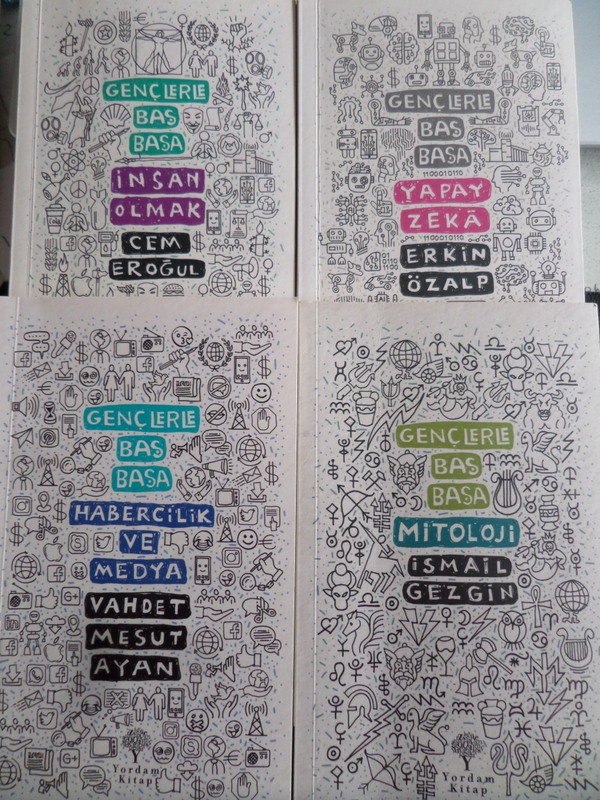 GENÇLERLE
BAŞ
BAŞA
İNSAN
OLMAK
CEM
EROĞUL
GENÇLERLE
BAŞ
BAŞA
1100010110
YAPAY
ZEKÂ
1100010110
ERKİN
ÖZALP
GENÇLERLE
BAŞ
BAŞA
HABERCİLİK
VE
MEDYA
VAHDET
MESUT
AYAN
Yordam
Kitap
GENÇLERLE
BAŞ
BAŞA
MİTOLOJİ
İSMAİL
GEZGİN
Yordam
Kitap